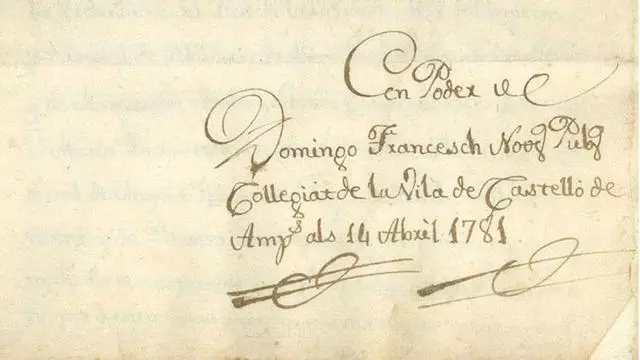 En Poder de
Domingo Francesch Notͥ Pubͨͥ
Collegiat de la Vila de Castelló de
Ampˢ als 14 Abril 1781